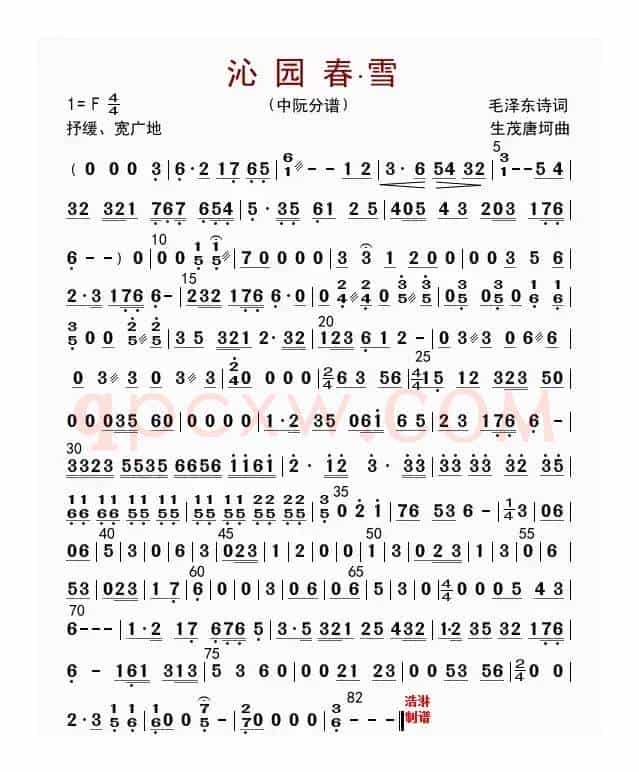 沁园春·雪
1= F 4/4 (中阮分谱) 毛泽东诗词
抒缓、宽广地 生茂唐坷曲
5
( 0 0 0 3 | 6 · 2 17 65 | 6/1 - - 1 2 | 3 · 6 54 32 | 3/1 - - 5 4 |
32 321 767 654 | 5 · 35 61 2 5 | 405 4 3 203 176 |
10
6 - - ) 0 | 0 0 1/5 1/5 | 7 0 0 0 0 | 3 3 1 2 0 0 | 0 0 3 5 6 |
15
2 · 3 176 6 - | 232 176 6 · 0 | 0 2/4 0 2/4 0 3/5 3/5 | 0 3/5 0 5 0 1/6 1/6 |
20
3/5 0 0 2/5 2/5 | 3 5 321 2 · 32 | 123 6 1 2 - | 0 3 3 0 6 6 |
25
0 3 3 0 3 3 | 2/4 0 0 0 0 0 | 2/4 6 3 56 | 4/4 15 12 323 50 |
0 0 035 60 | 0 0 0 0 | 1 · 2 35 061 65 | 2 3 176 6 - |
30
3323 5535 6656 1161 | 2 · 12 3 · 33 | 33 33 32 35 |
35
11/66 11/66 11/55 11/55 | 22/55 11/55 22/55 22/55 | 3/5 0 2 1 | 76 53 6 - | 1/4 3 | 0 3 |
40 45 50 55
06 | 5 | 3 | 0 | 6 | 3 | 023 | 1 | 2 | 0 | 0 | 1 3 | 0 2 3 | 1 | 3 5 |
60 65
53 | 023 | 1 7 | 6 | 0 | 3 | 06 | 06 | 35 | 2 | 3 | 4/4 0 0 0 5 4 3 |
70
6 - - - | 1 · 2 17 676 5 | 3 · 5 321 25 432 | 1·2 35 32 176 |
75
6 - 161 313 | 5 3 6 0 | 0 0 21 23 | 0 0 53 56 | 2/4 0 0 |
82 浩淋
2 · 3 1/5 1/6 | 1/6 0 0 7/5 - | 2/7 0 0 0 0 | 3/6 - - - 制谱
qpcxw.com